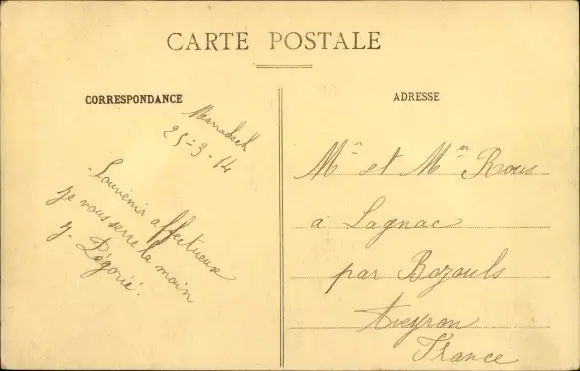 CARTE POSTALE
CORRESPONDANCE
Marrakech
25-3-14
Souvenir affectueux
je vous serre la main
J. Dégorié.
ADRESSE
Mr et Mme Rous
à Lagnac
par Bozouls
Aveyron
France